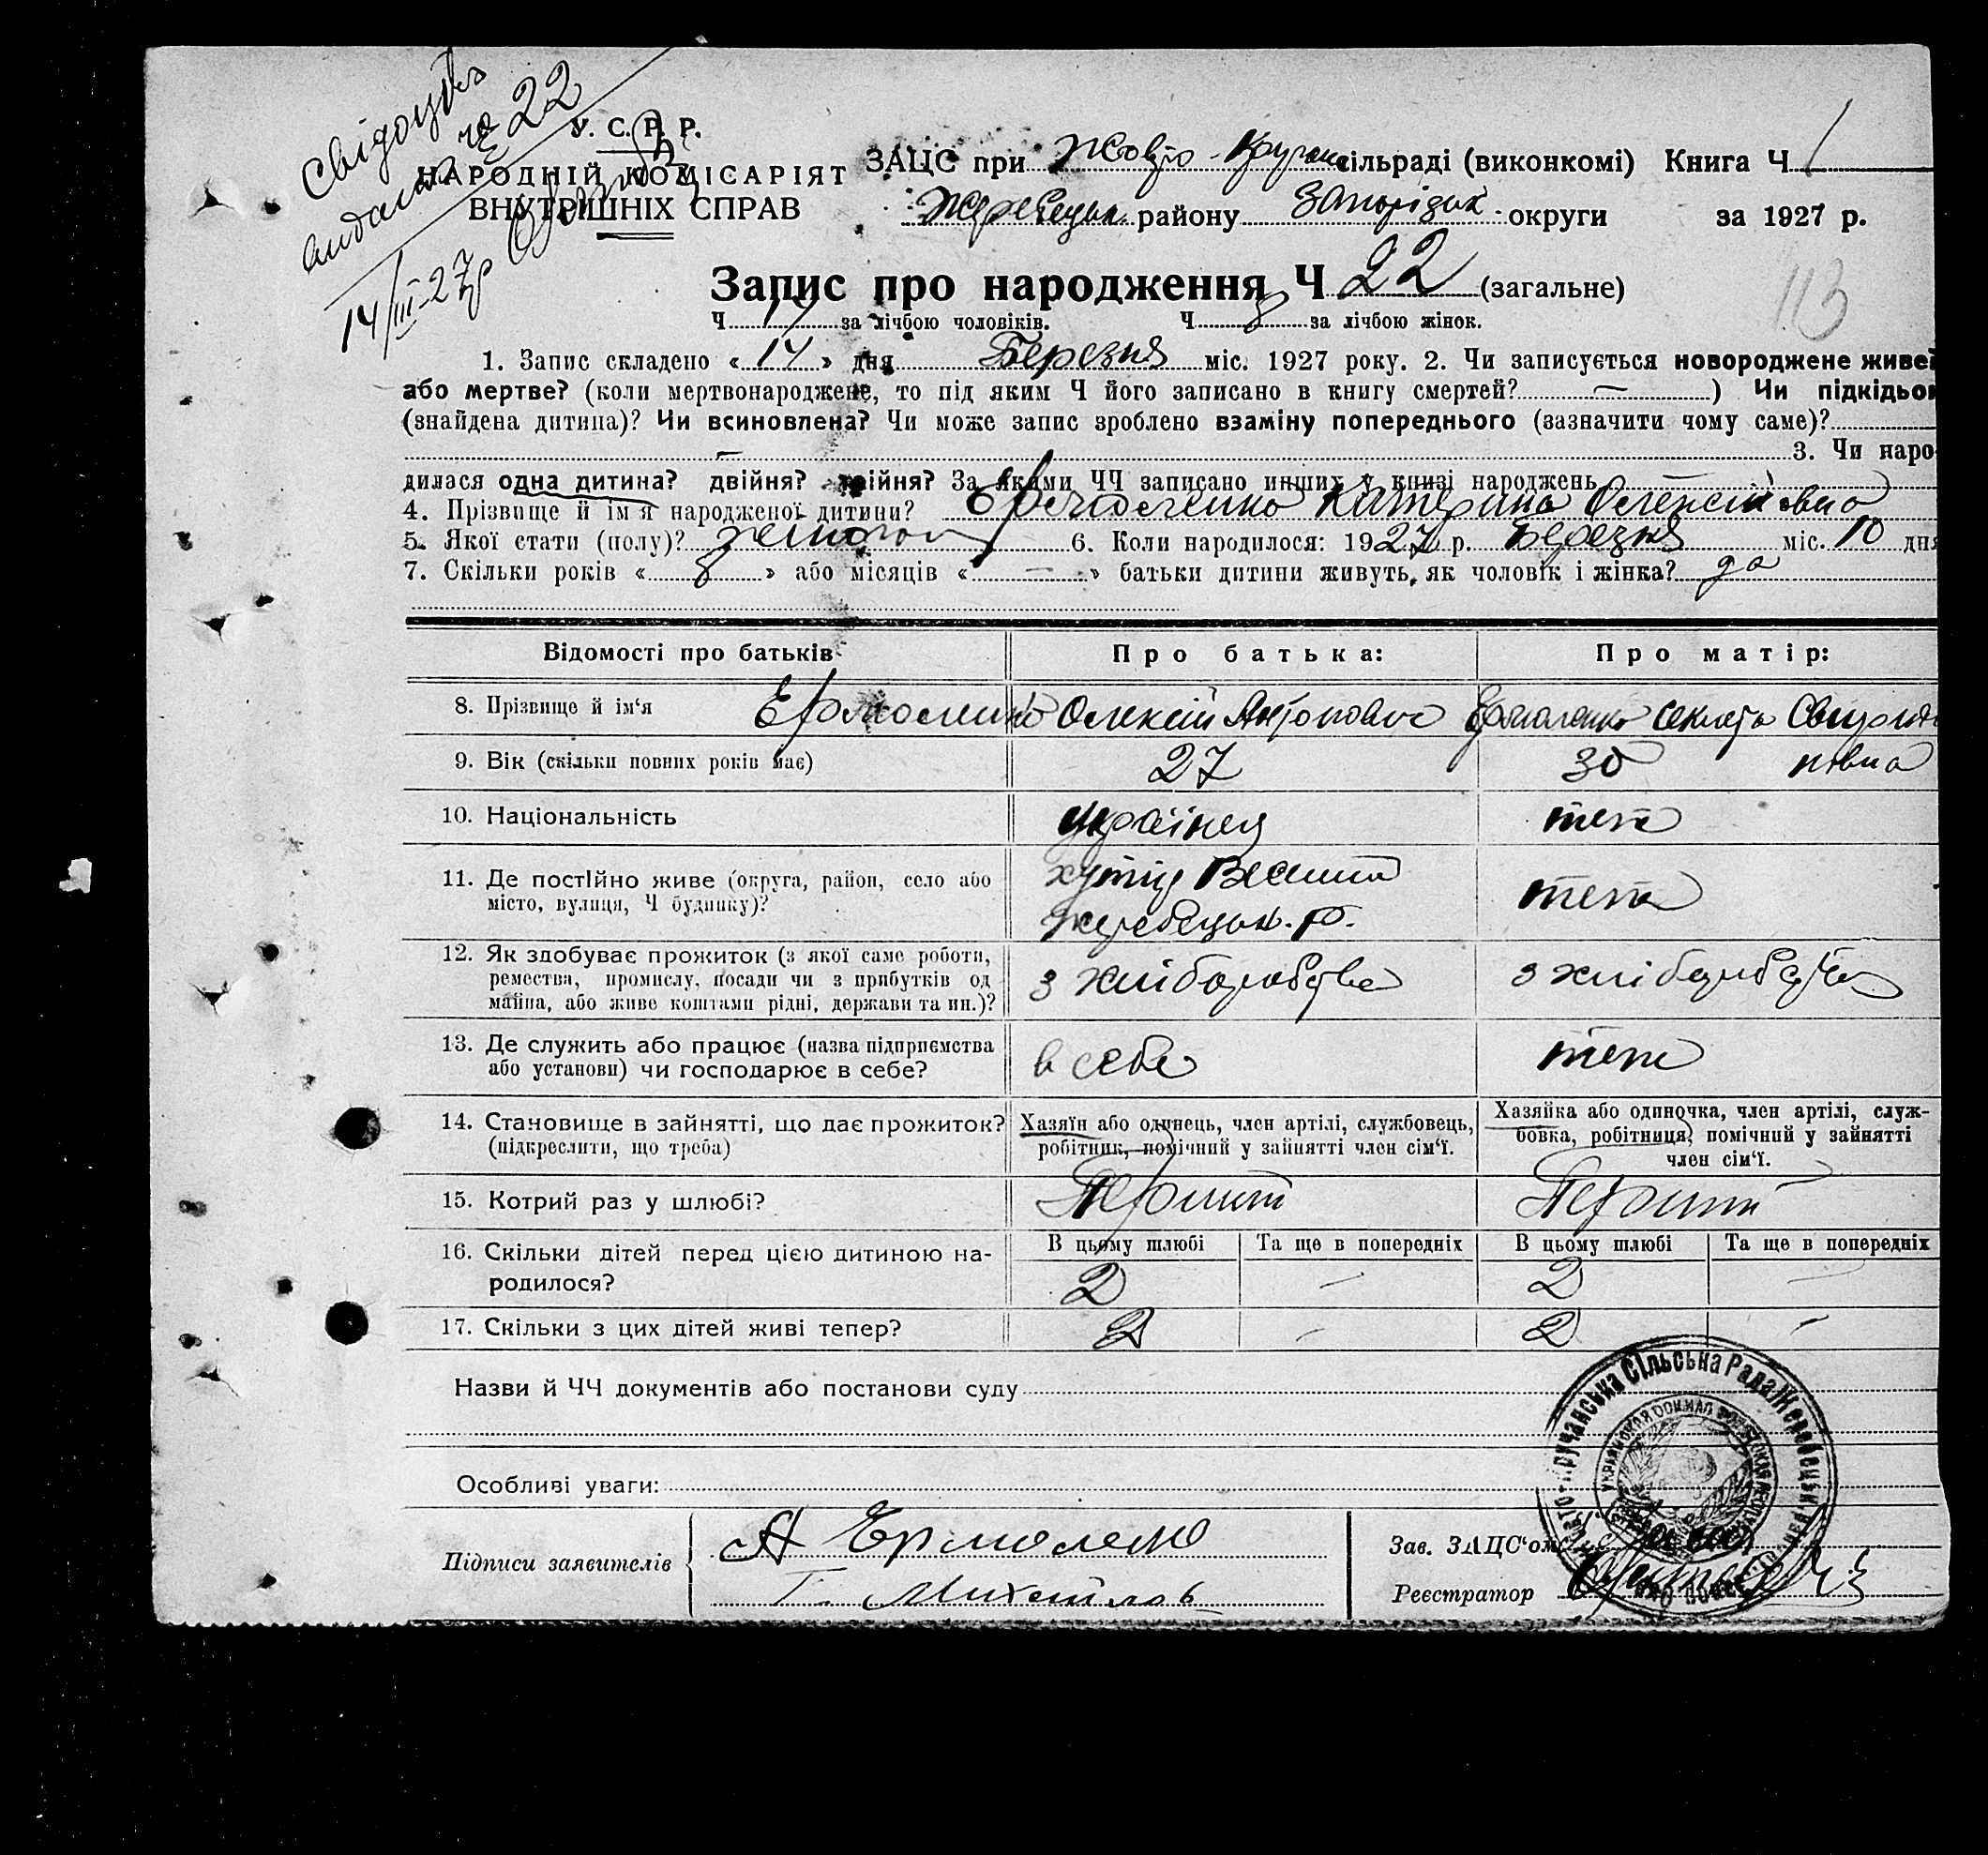 Свідоцтво
видано за
Ч 22
14/III-27р
У. С. Р. Р.
НАРОДНІЙ КОМІСАРІЯТ
ВНУТРІШНІХ СПРАВ
ЗАЦС при Жовто-Круча сільраді (виконкомі) Книга Ч 1
Жеребецьк. району Запорізьк. округи за 1927 р.
Запис про народження Ч 22 (загальне)
Ч 14 за лічбою чоловіків. Ч 8 за лічбою жінок.
113
1. Запис складено « 14 » дня Березня міс. 1927 року. 2. Чи записується новороджене живе?
або мертве? (коли мертвонароджене, то під яким Ч його записано в книгу смертей? — ) Чи підкідьок
(знайдена дитина)? Чи всиновлена? Чи може запис зроблено взаміну попереднього (зазначити чому саме)?
— 3. Чи наро-
дилася одна дитина? двійня? трійня? За якими ЧЧ записано инших у книзі народжень —
4. Прізвище й ім'я народженої дитини? Єрмоленко Катерина Олексіївна
5. Якої стати (полу)? жіночої 6. Коли народилося: 1927 р. Березня міс. 10 дня
7. Скільки років « 8 » або місяців « — » батьки дитини живуть, як чоловік і жінка? да
Відомості про батьків Про батька: Про матір:
8. Прізвище й ім'я Ермоленко Олексій Антонович Ермоленко Секлета Свирыдо
9. Вік (скільки повних років має) 27 30 новна
10. Національність українец теж
11. Де постійно живе (округа, район, село або
місто, вулиця, Ч будинку)? хутір Веселий
Жеребецьк. р. теж
12. Як здобуває прожиток (з якої саме роботи,
ремества, промислу, посади чи з прибутків од
майна, або живе коштами рідні, держави та ин.)? з хліборобства з хліборобства
13. Де служить або працює (назва підприємства
або установи) чи господарює в себе? в себе теж
14. Становище в зайнятті, що дає прожиток?
(підкреслити, що треба)
Хазяїн або одинець, член артілі, службовець,
робітник, помічний у зайнятті член сім'ї.
Хазяйка або одиночка, член артілі, служ-
бовка, робітниця, помічний у зайнятті
член сім'ї.
15. Котрий раз у шлюбі? Перший Перший
В цьому шлюбі Та ще в попередніх В цьому шлюбі Та ще в попередніх
16. Скільки дітей перед цією дитиною на-
родилося? 2 — 2 —
17. Скільки з цих дітей живі тепер? 2 — 2 —
Назви й ЧЧ документів або постанови суду
Особливі уваги:
Підписи заявителів
А Ермоленко
Г. Михайлов
Зав. ЗАЦС'ом
Реєстратор
Кручанська Сільська Рада Жеребецьк